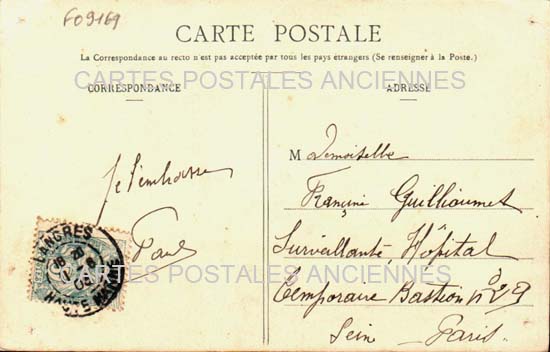 F09169
CARTE POSTALE
La Correspondance au recto n'est pas acceptée par tous les pays étrangers (Se renseigner à la Poste.)
CARTES POSTALES ANCIENNES
CORRESPONDANCE
ADRESSE
Je t'embrasse
Paul
LANGRES
HAUTE MARNE
M ademoiselle
Francine Guillioumet
Surveillante Hôpital
CARTES POSTALES ANCIENNES
Temporaire Bastion n° 29
Seine Paris.